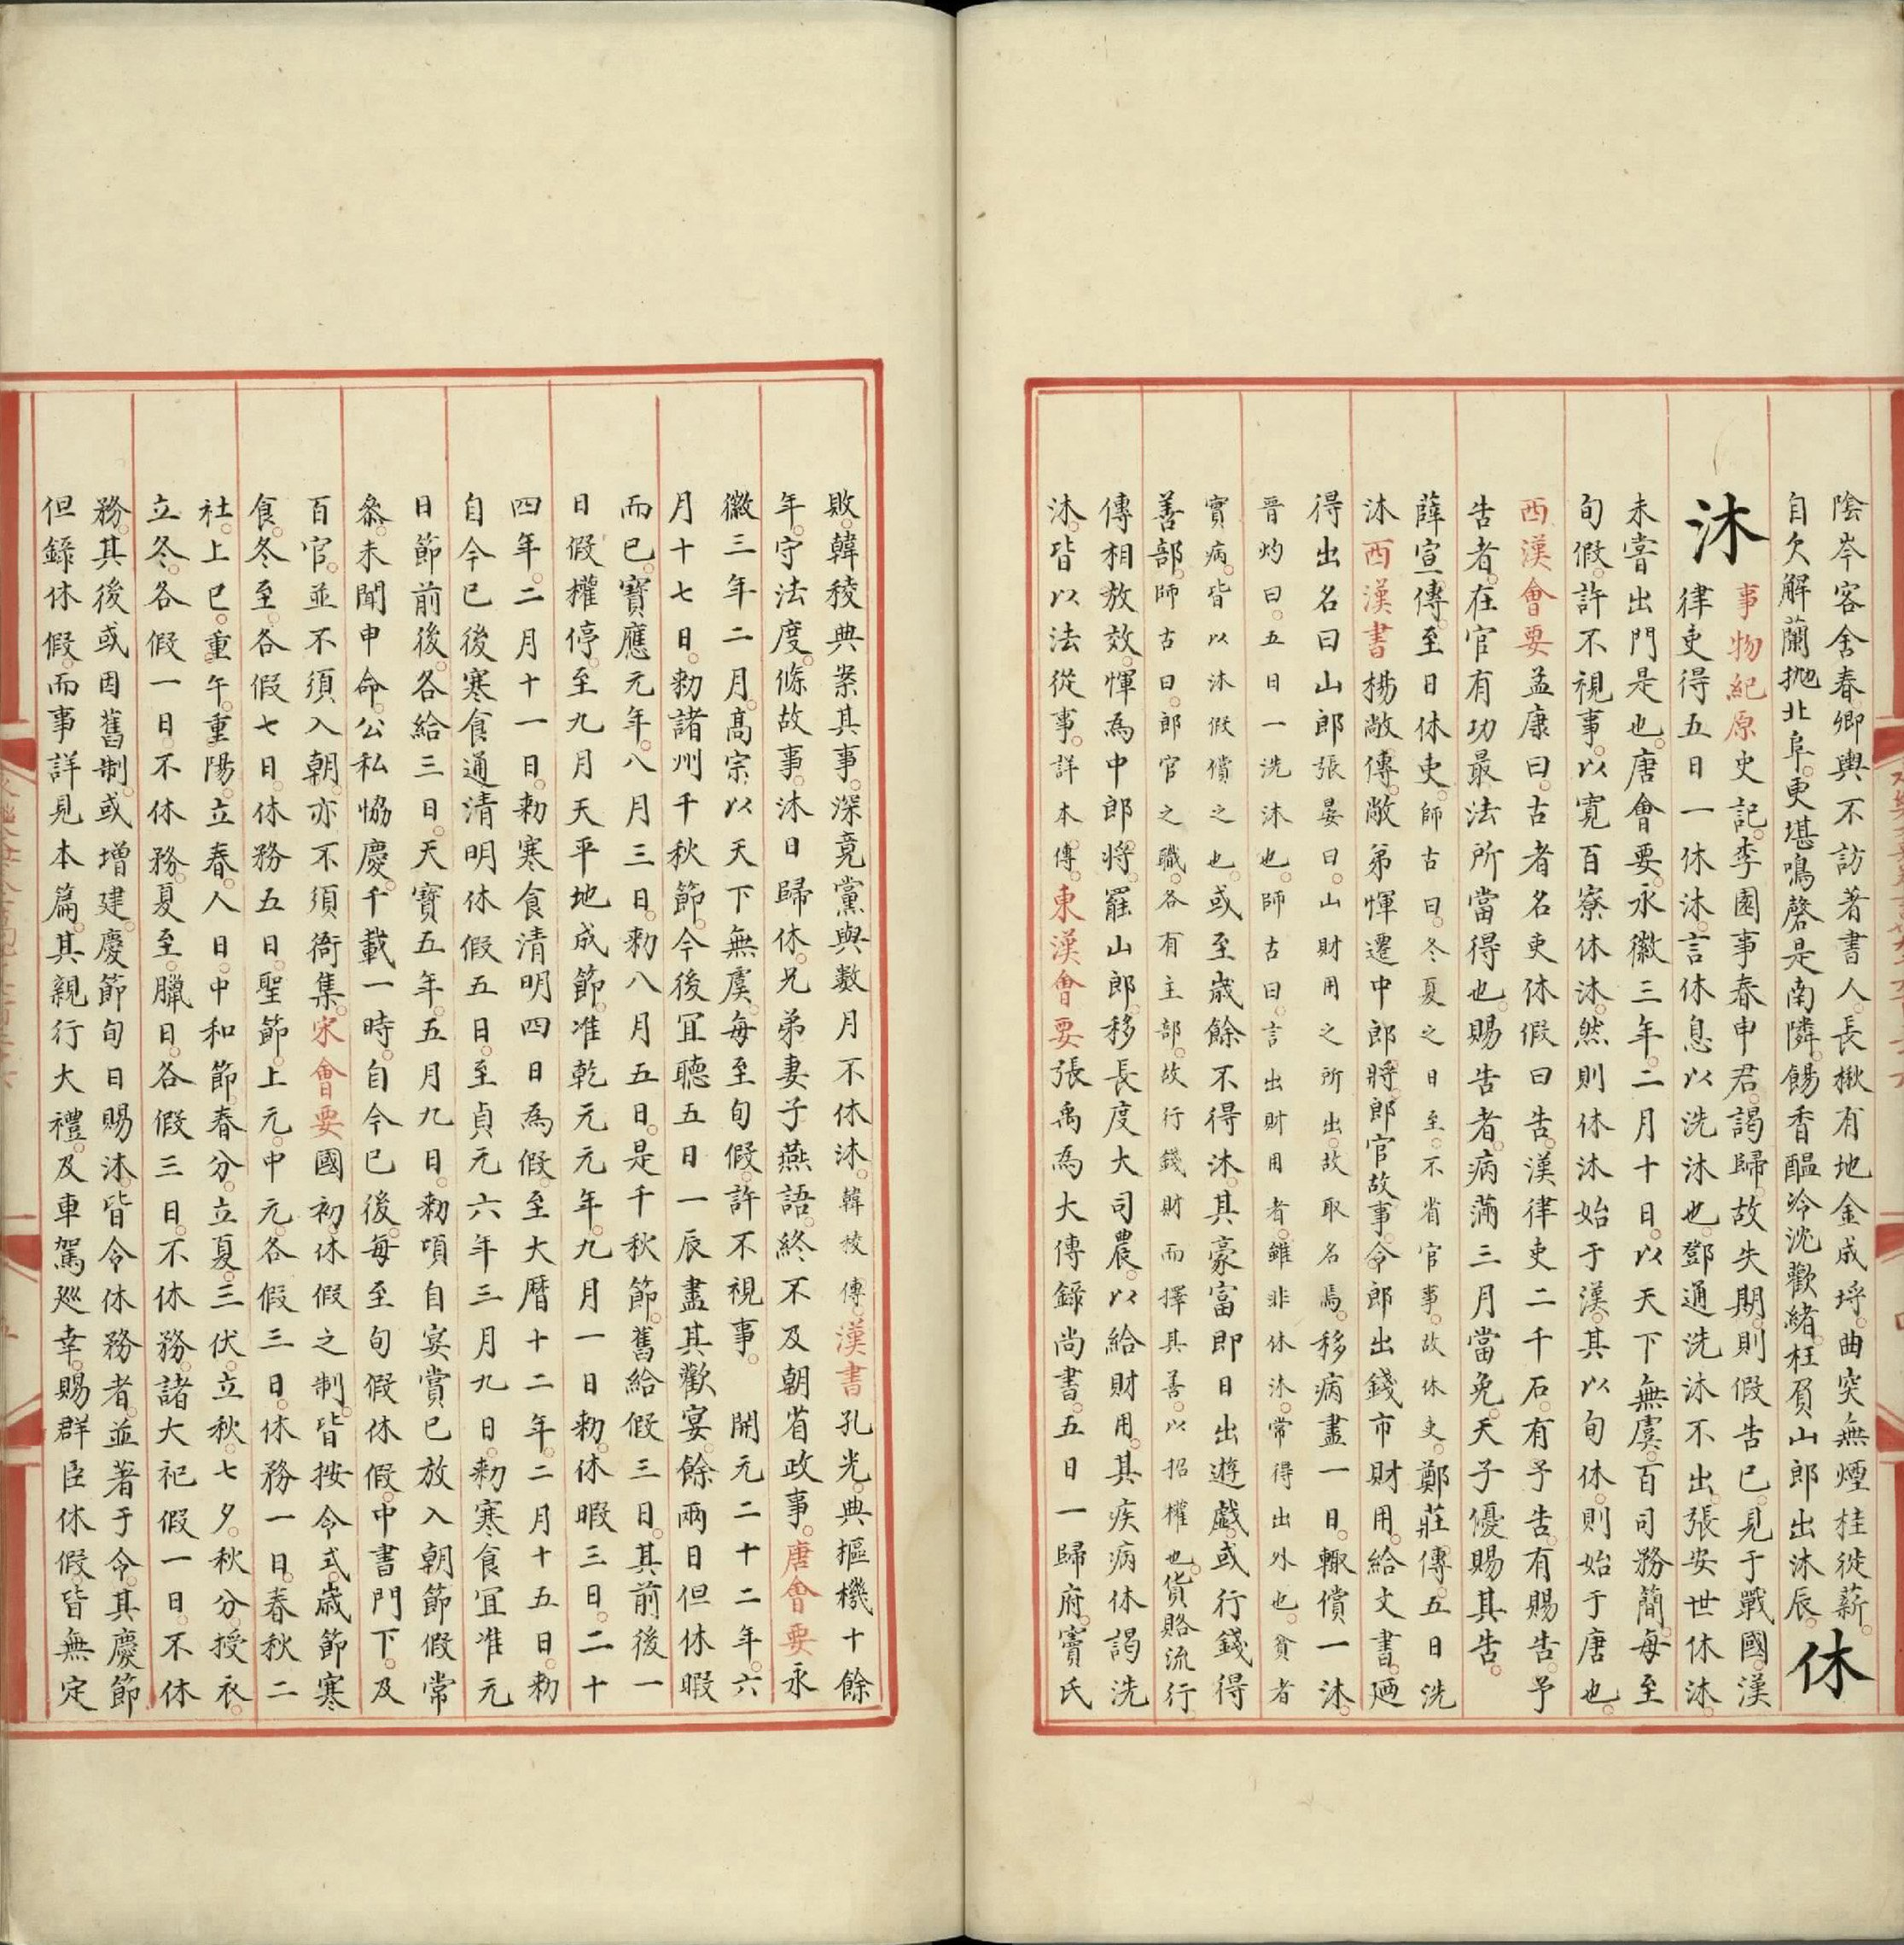 陰岑客舍春卿輿不訪著書人長楸有地金成埒曲突無煙桂徙薪
自欠解蘭抛北阜更堪鳴磬是南隣餳香醖冷沈歡緒枉負山郎出沐辰
休沐
事物紀原史記李園事春申君謁歸故失期則假告已見于戰國漢
律吏得五日一休沐言休息以洗沐也鄧通洗沐不出張安世休沐
未嘗出門是也唐會要永徽三年二月十日以天下無虞百司務簡每至
旬假許不視事以寬百寮休沐然則休沐始于漢其以旬休則始于唐也
西漢會要孟康曰古者名吏休假曰告漢律吏二千石有予告有賜告予
告者在官有功最法所當得也賜告者病滿三月當免天子優賜其告
薛宣傳至日休吏師古曰冬夏之日至不省官事故休吏鄭莊傳五日洗
沐西漢書楊敞傳敞弟惲遷中郎將郎官故事令郎出錢市財用給文書廼
得出名曰山郎張晏曰山財用之所出故取名焉移病盡一日輒償一沐
晉灼曰五日一洗沐也師古曰言出財用者雖非休沐常得出外也貧者
實病皆以沐假償之也或至歲餘不得沐其豪富即日出遊戲或行錢得
善部師古曰郎官之職各有主部故行錢財而擇其善以招權也貨賂流行
傳相放效惲為中郎將罷山郎移長度大司農以給財用其疾病休謁洗
沐皆以法從事詳本傳東漢會要張禹為大傅錄尚書五日一歸府竇氏
敗韓稜典案其事深竟黨與數月不休沐韓稜傳漢書孔光典樞機十餘
年守法度條故事沐日歸休兄弟妻子燕語終不及朝省政事唐會要永
徽三年二月高宗以天下無虞每至旬假許不視事開元二十二年六
月十七日勑諸州千秋節今後宜聽五日一辰盡其歡宴餘兩日但休暇
而已寶應元年八月三日勑八月五日是千秋節舊給假三日其前後一
日假權停至九月天平地成節准乾元元年九月一日勑休暇三日二十
四年二月十一日勑寒食清明四日為假至大曆十二年二月十五日勑
自今已後寒食通清明休假五日至貞元六年三月九日勑寒食宜准元
日節前後各給三日天寶五年五月九日勑頃自宴賞已放入朝節假常
叅未聞申命公私恊慶千載一時自今已後每至旬假休假中書門下及
百官並不須入朝亦不須衙集宋會要國初休假之制皆按令式歲節寒
食冬至各假七日休務五日聖節上元中元各假三日休務一日春秋二
社上巳重午重陽立春人日中和節春分立夏三伏立秋七夕秋分授衣
立冬各假一日不休務夏至臘日各假三日不休務諸大祀假一日不休
務其後或因舊制或增建慶節旬日賜沐皆令休務者並著于令其慶節
但錄休假而事詳見本篇其親行大禮及車駕廵幸賜群臣休假皆無定